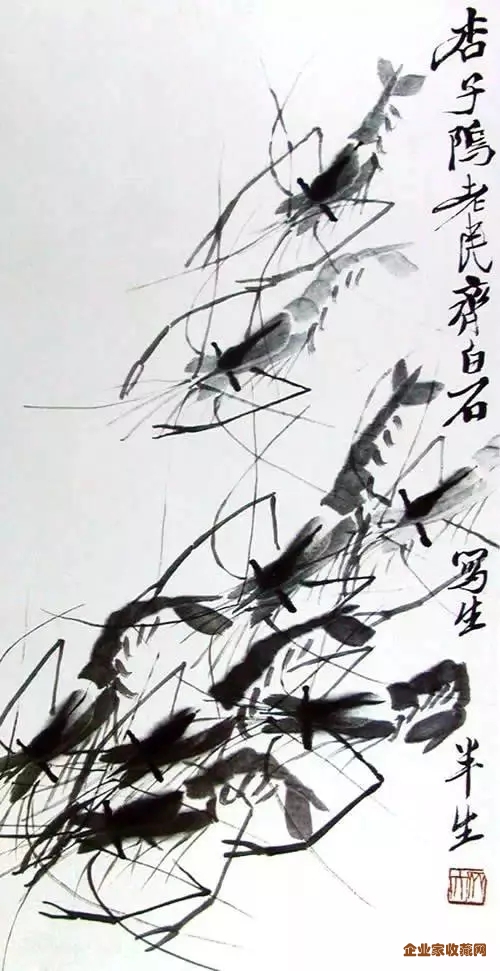 杏子隖老民齊白石 寫生 半生
企业家收藏网